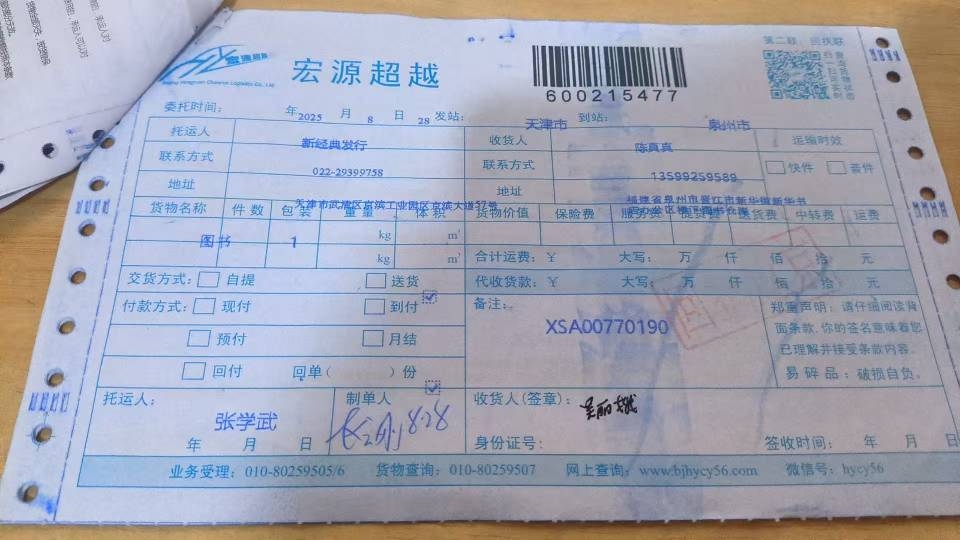 宏源超越
宏源超越
600215477
第二联：回执联
委托时间： 年2025 月 8 日 28 发站： 天津市 到站： 泉州市
托运人 新经典发行 收货人 陈真真 运输时效
联系方式 022-29399758 联系方式 13599259589 快件 普件
地址 天津市武清区京滨工业园区京滨大道57号 地址 福建省泉州市晋江市新华街新华书
货物名称 件数 包装 重量 体积 货物价值 保险费 中转费 运费
图书 1 kg m³
kg m³ 合计运费：￥ 大写： 万 仟 佰 拾 元
交货方式： 自提 送货 代收货款：￥ 大写： 万 仟 佰 拾 元
付款方式： 现付 到付 备注：
预付 月结 XSA00770190
回付 回单（ ）份
郑重声明：请仔细阅读背
面条款，你的签名意味着您
已理解并接受条款内容。
易碎品：破损自负。
托运人： 张学武 制单人 828 收货人(签章)：
年 月 日 身份证号： 签收时间： 年 月 日
业务受理：010-80259505/6 货物查询：010-80259507 网上查询：www.bjhycy56.com 微信号：hycy56